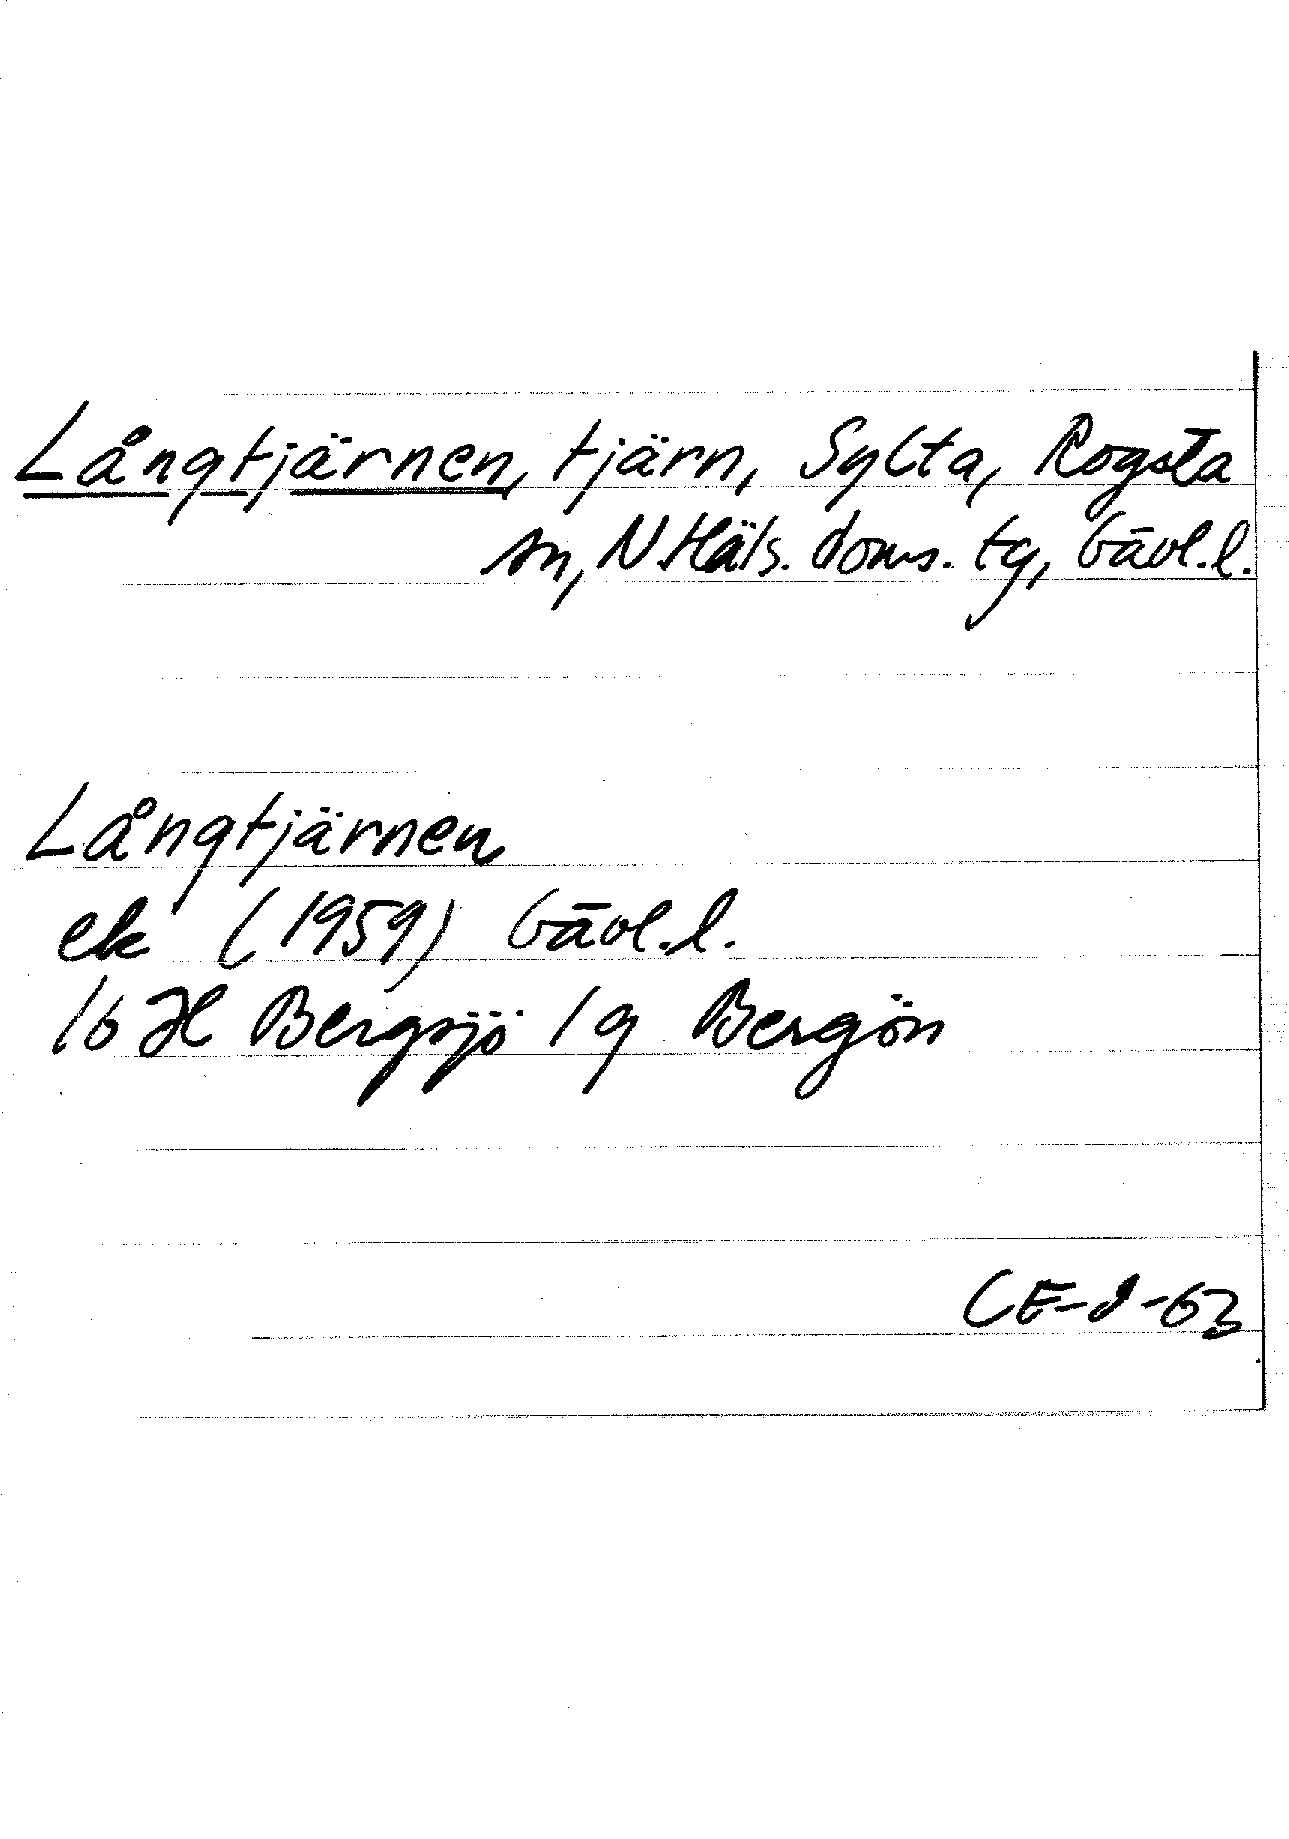 Långtjärnen, tjärn, Sylta, Rogsta
sn, N.Häls. doms. tg, Gävl.l.
Långtjärnen
ek (1959) Gävl.l.
16 H Bergsjö 1 g Bergön
CE-I-63